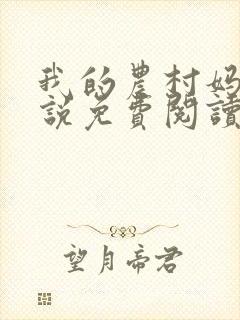 我的農村媽
說免費閱讀
望月帝君